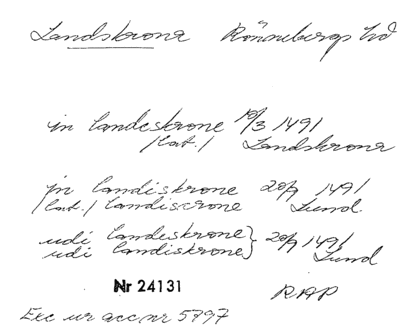 Landskrona Rönnebergs hd
in landeskrone 10/3 1491
/lat./ Landskrona
in landiskrone 20/7 1491
/lat./ landiscrone Lund.
udi landeskrone} 20/7 1491
udi landiskrone} Lund
Nr 24131
RAP
Exc ur acc nr 5797